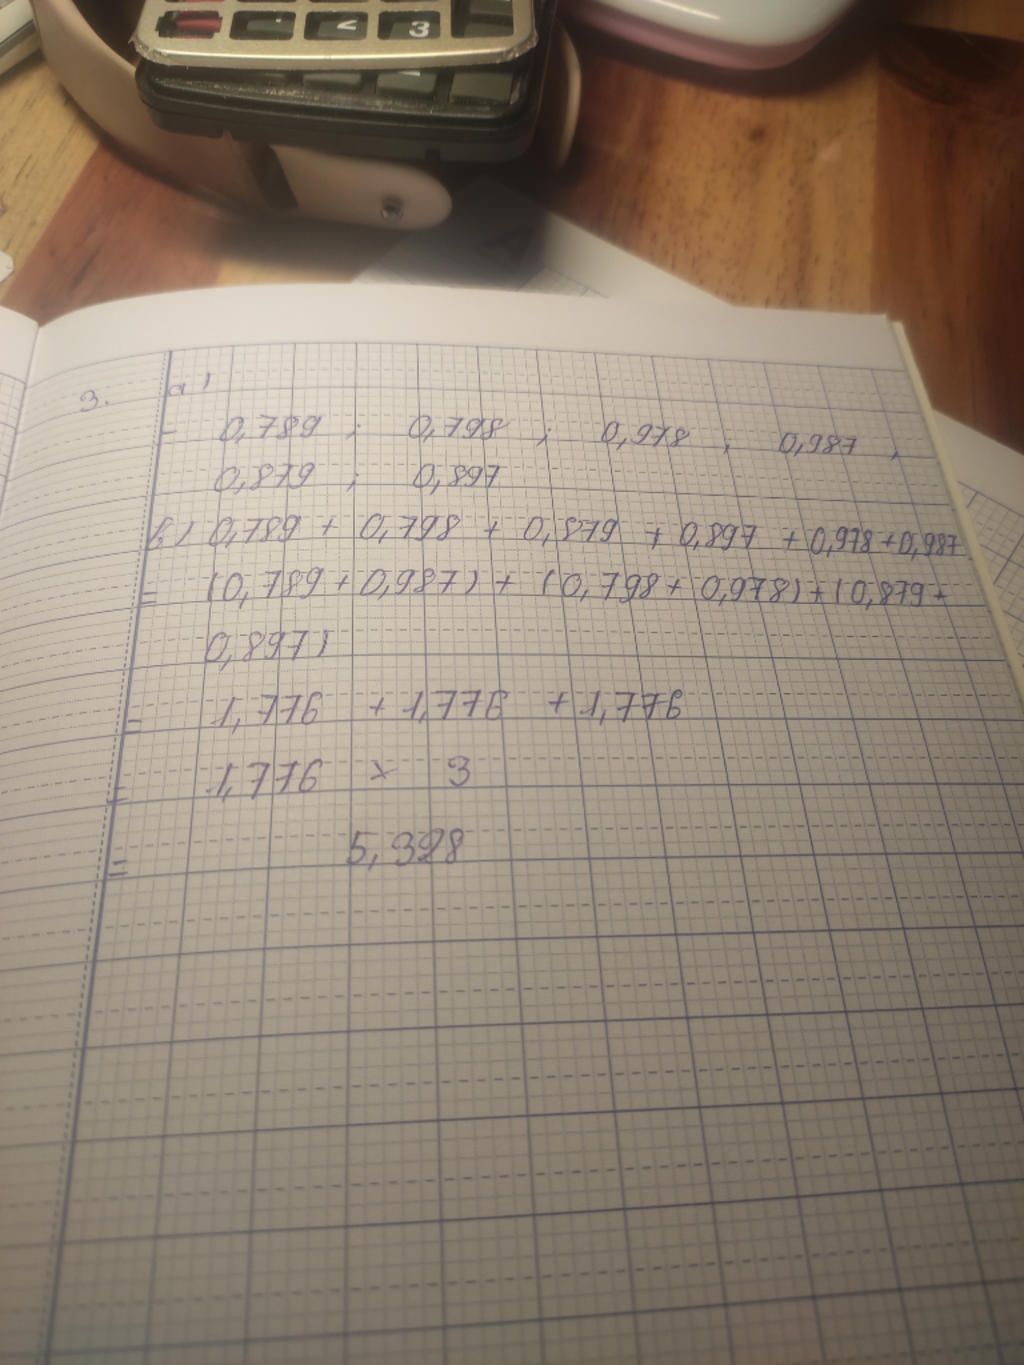 3
3. a)
- 0,789 ; 0,798 ; 0,978 ; 0,987 ;
0,879 ; 0,897
b) 0,789 + 0,798 + 0,879 + 0,897 + 0,978 + 0,987
= (0,789 + 0,987) + (0,798 + 0,978) + (0,879 +
0,897)
= 1,776 + 1,776 + 1,776
= 1,776 x 3
= 5,328